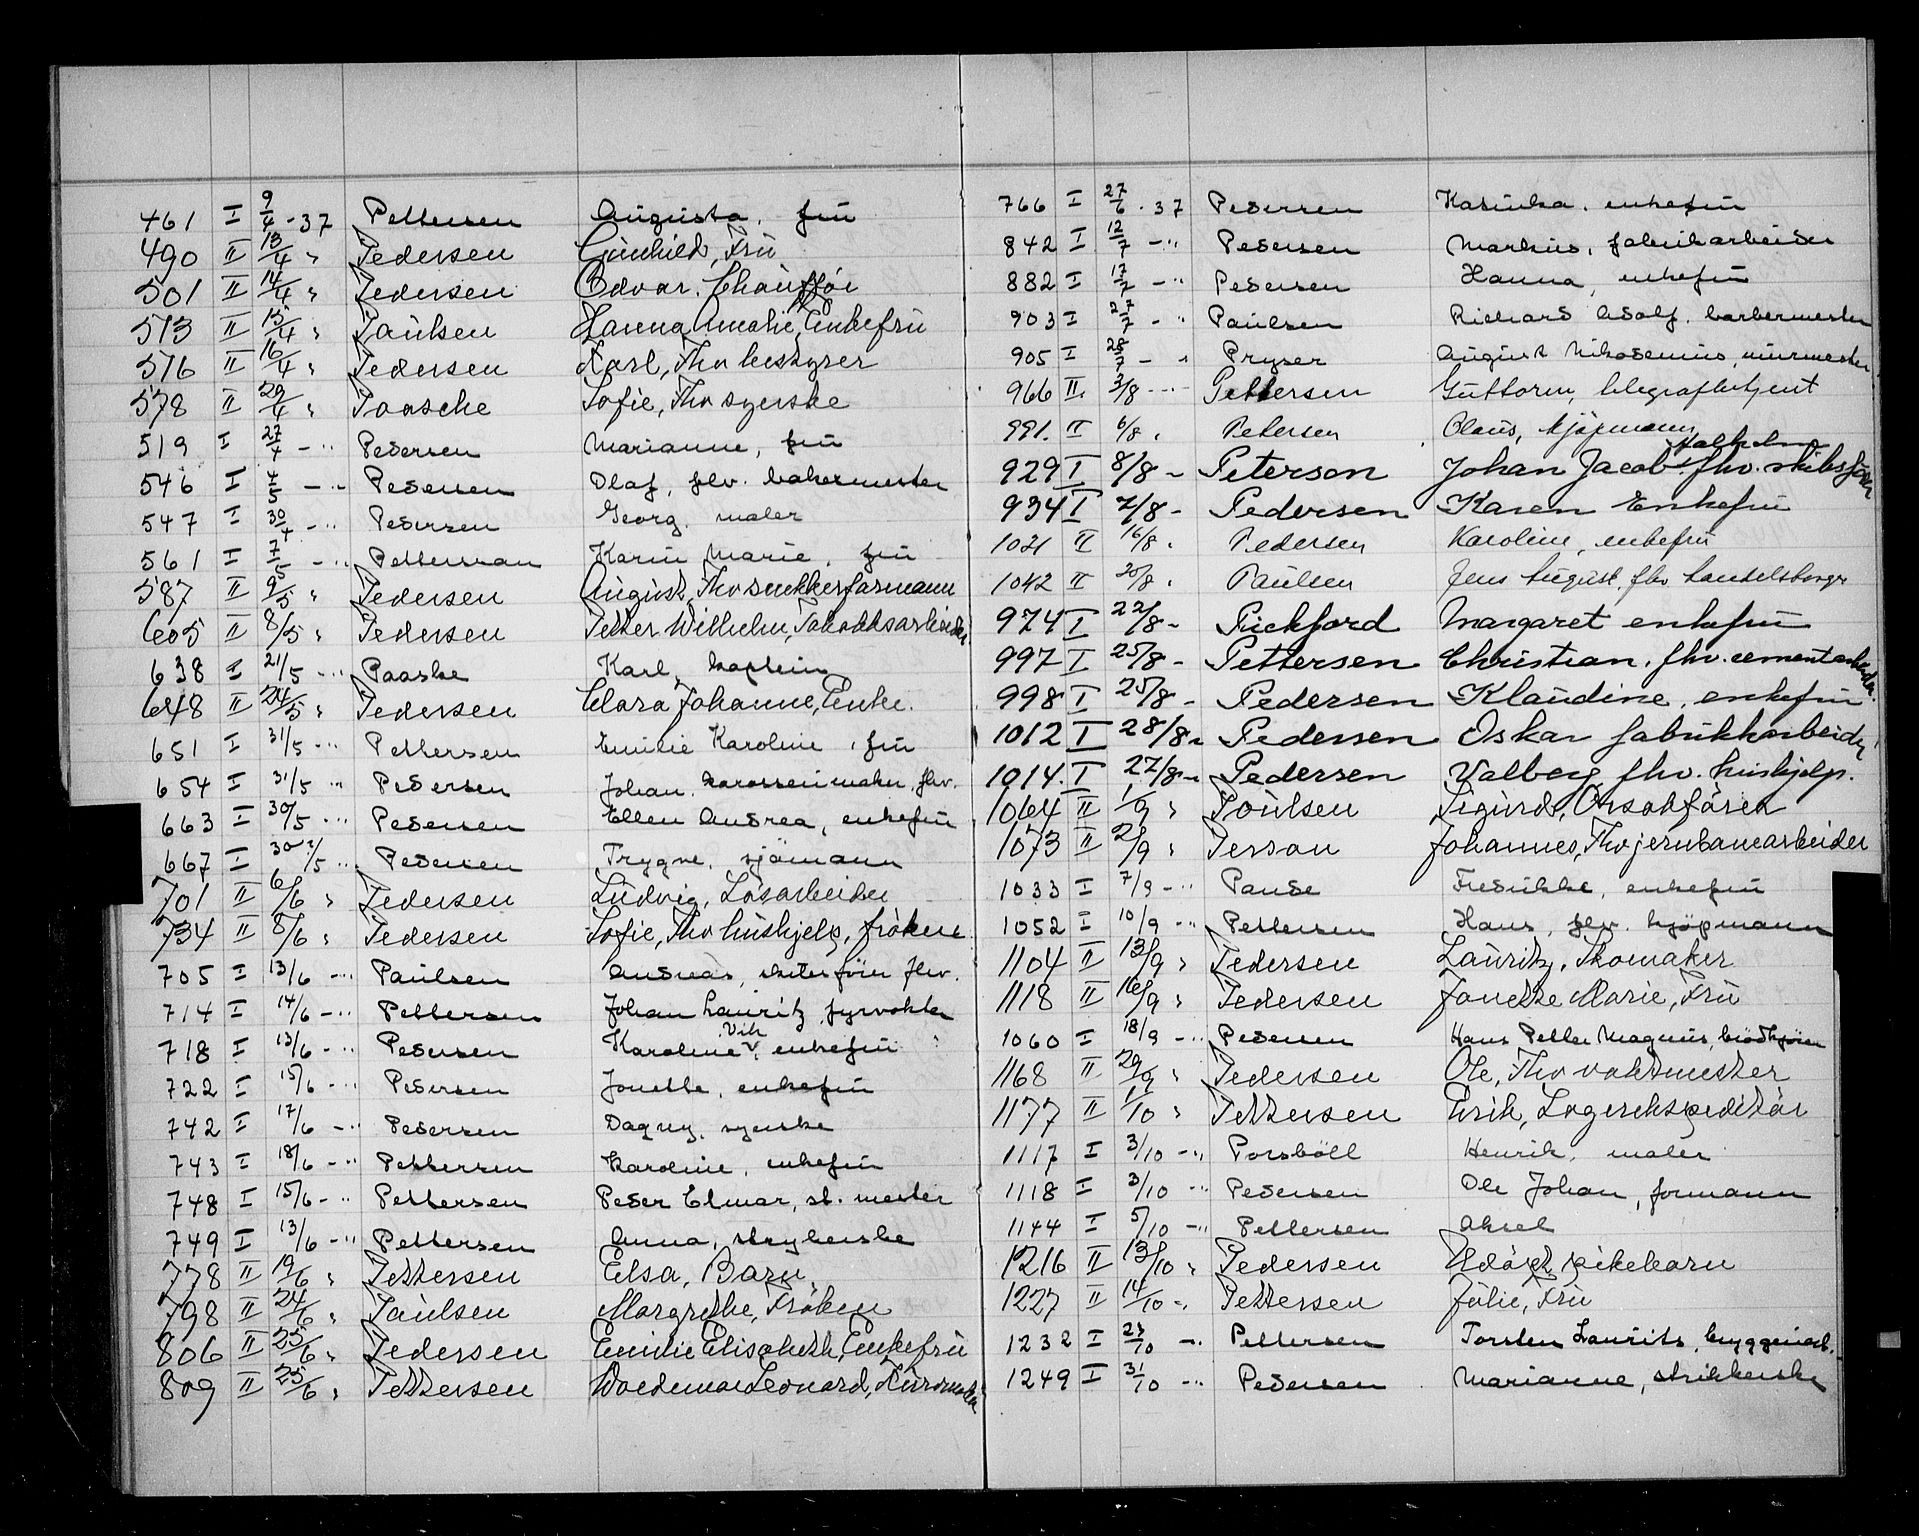 461 I 9/4 - 37 Pettersen Augusta, fru
490 II 13/4 " Pedersen Gunhild, Fru
501 II 14/4 " Pedersen Odvar, Chauffør
513 II 15/4 " Paulsen Hanna Amalie, Enkefru
516 II 16/4 " Pedersen Karl, Fhv bestyrer
578 II 29/4 " Paasche Sofie, Fhv syerske
519 I 27/4 - " Pedersen Marianne, fru
546 I 4/5 - " Pedersen Olaf, fhv. bakermester
547 I 30/4 - " Pedersen Georg, maler
561 I 7/5 - " Petterson Karin Marie, fru
587 II 9/5 " Pedersen August, Fhv snekkerformann
605 II 8/5 " Pedersen Petter Wilhelm, Tobakksarbeider
638 I 21/5 - " Paaske Karl, kaptein
648 II 24/5 " Pedersen Clara Johanne, Enke.
651 I 31/5 - " Pettersen Emilie Karoline, fru
654 I 31/5 " Pedersen Johan, karosserimaker, fhv.
663 I 30/5 - " Pedersen Ellen Andrea, enkefru
667 I 30/5 " Pedersen Trygve, sjömann
701 II 6/6 " Pedersen Ludvig, Løsarbeider
734 II 8/6 " Pedersen Sofie, Fhv hushjelp, frøken
705 I 13/6 - " Paulsen Andreas, skibsförer fhv.
714 I 14/6 - " Pettersen Johan Lauritz, fyrvokter
718 I 13/6 - " Pedersen Karoline Vik, enkefru
722 I 15/6 - " Pedersen Jonette, enkefru
742 I 17/6 - " Pedersen Dagny, syerske
743 I 18/6 - " Pettersen Karoline, enkefru
748 I 15/6 - " Pettersen Peder Elmar, st. mester
749 I 13/6 - " Pettersen Anna, strykerske
778 II 19/6 " Pettersen Elsa, Barn
798 II 24/6 " Paulsen Margrethe, Frøken
806 II 25/6 " Pedersen Emilie Elisabeth, Enkefru
809 II 25/6 " Pettersen Woldemar Leonard,
766 I 27/6 - 37 Pedersen Kasinka, enkefru
842 I 12/7 - " Pedersen Markus, fabrikarbeider
882 I 17/7 - " Pedersen Hanna, enkefru
903 I 27/7 - " Paulsen Richard Adolf, barbermester
905 I 28/7 - " Pryser August Nikodemus, murmester
966 II 3/8 - " Pettersen Guttorm, telegrafbetjent
991. II 6/8 " Petersen Olaus, kjøpmann
929 I 8/8 - Peterson Johan Jacob Malholm, fhv. skibsfører
934 I 7/8 - Pedersen Karen Enkefru
1021 II 16/8 " Pedersen Karoline, enkefru
1042 II 20/8 " Paulsen Jens August, fhv. handelsborger
974 I 22/8 - Pickford Margaret enkefru
997 I 25/8 - Pettersen Christian, fhv. cementarbeider
998 I 25/8 - Pedersen Klaudine, enkefru
1012 I 28/8 - Pedersen Oskar fabrikkarbeider
1014. I 27/8 - Pedersen Valborg fhv. hushjelp.
1064 II 1/9 " Poulsen Sigurd, Ørsakfører
1073 II 2/9 " Persson Johannes, Fhv jernbanearbeider
1033 I 7/9 - " Pande Fredrikke, enkefru
1052 I 10/9 - " Pettersen Hans, fhv. kjöpmann
1104 II 13/9 " Pedersen Lauritz, Skomaker
1118 II 16/9 " Pedersen Jonette Marie, Fru
1060 I 18/9 - " Pedersen Hans Petter Magnus, brödkjörer
1168 II 29/9 " Pedersen Ole, Fhv vaktmester
1177 II 1/10 " Pettersen Erik, Lagerekspeditør
1117 I 3/10 - " Porsböll Henrik, maler
1118 I 3/10 - " Pedersen Ole Johan, formann
1144 I 5/10 - " Pettersen Aksel
1216 II 13/10 " Pedersen Udøpt pikebarn
1227 II 14/10 - " Pettersen Julie, Fru
1232 I 23/10 - " Pettersen Torsten Laurits, bryggeriarb.
1249 I 31/10 - " Pedersen Marianne, strikkerske